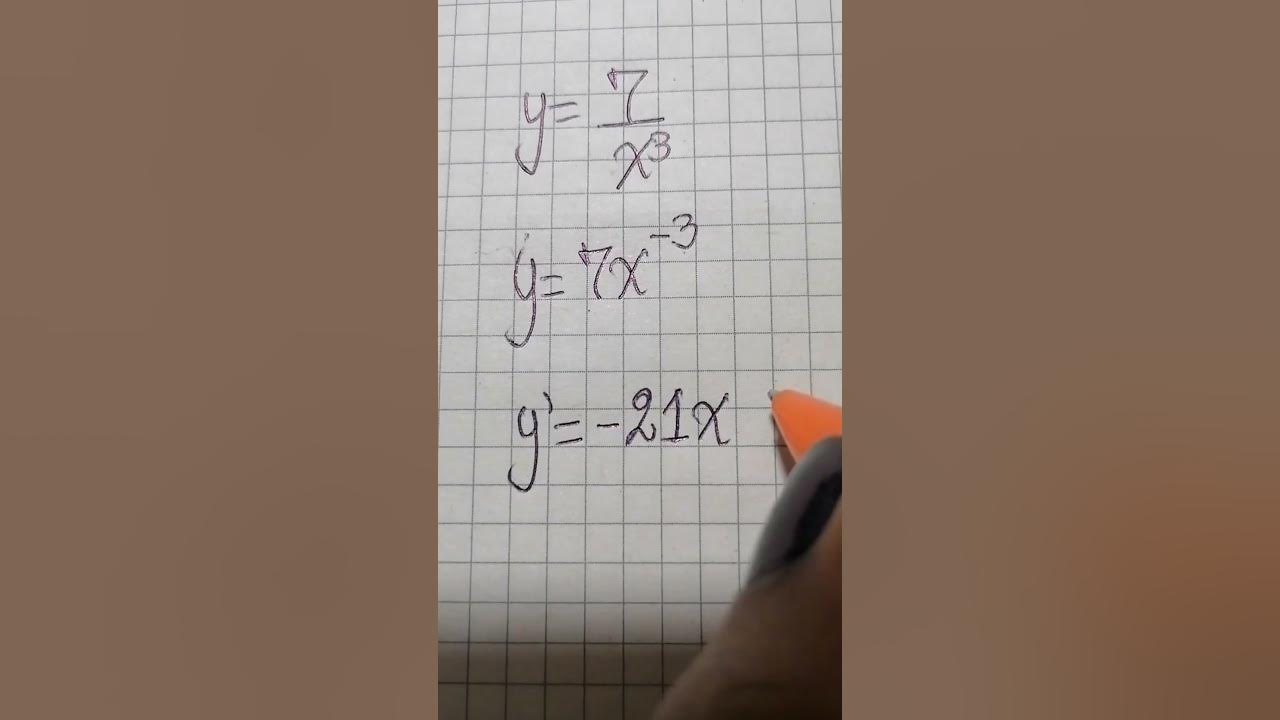 y = 7/x³
y = 7x⁻³
y' = -21x